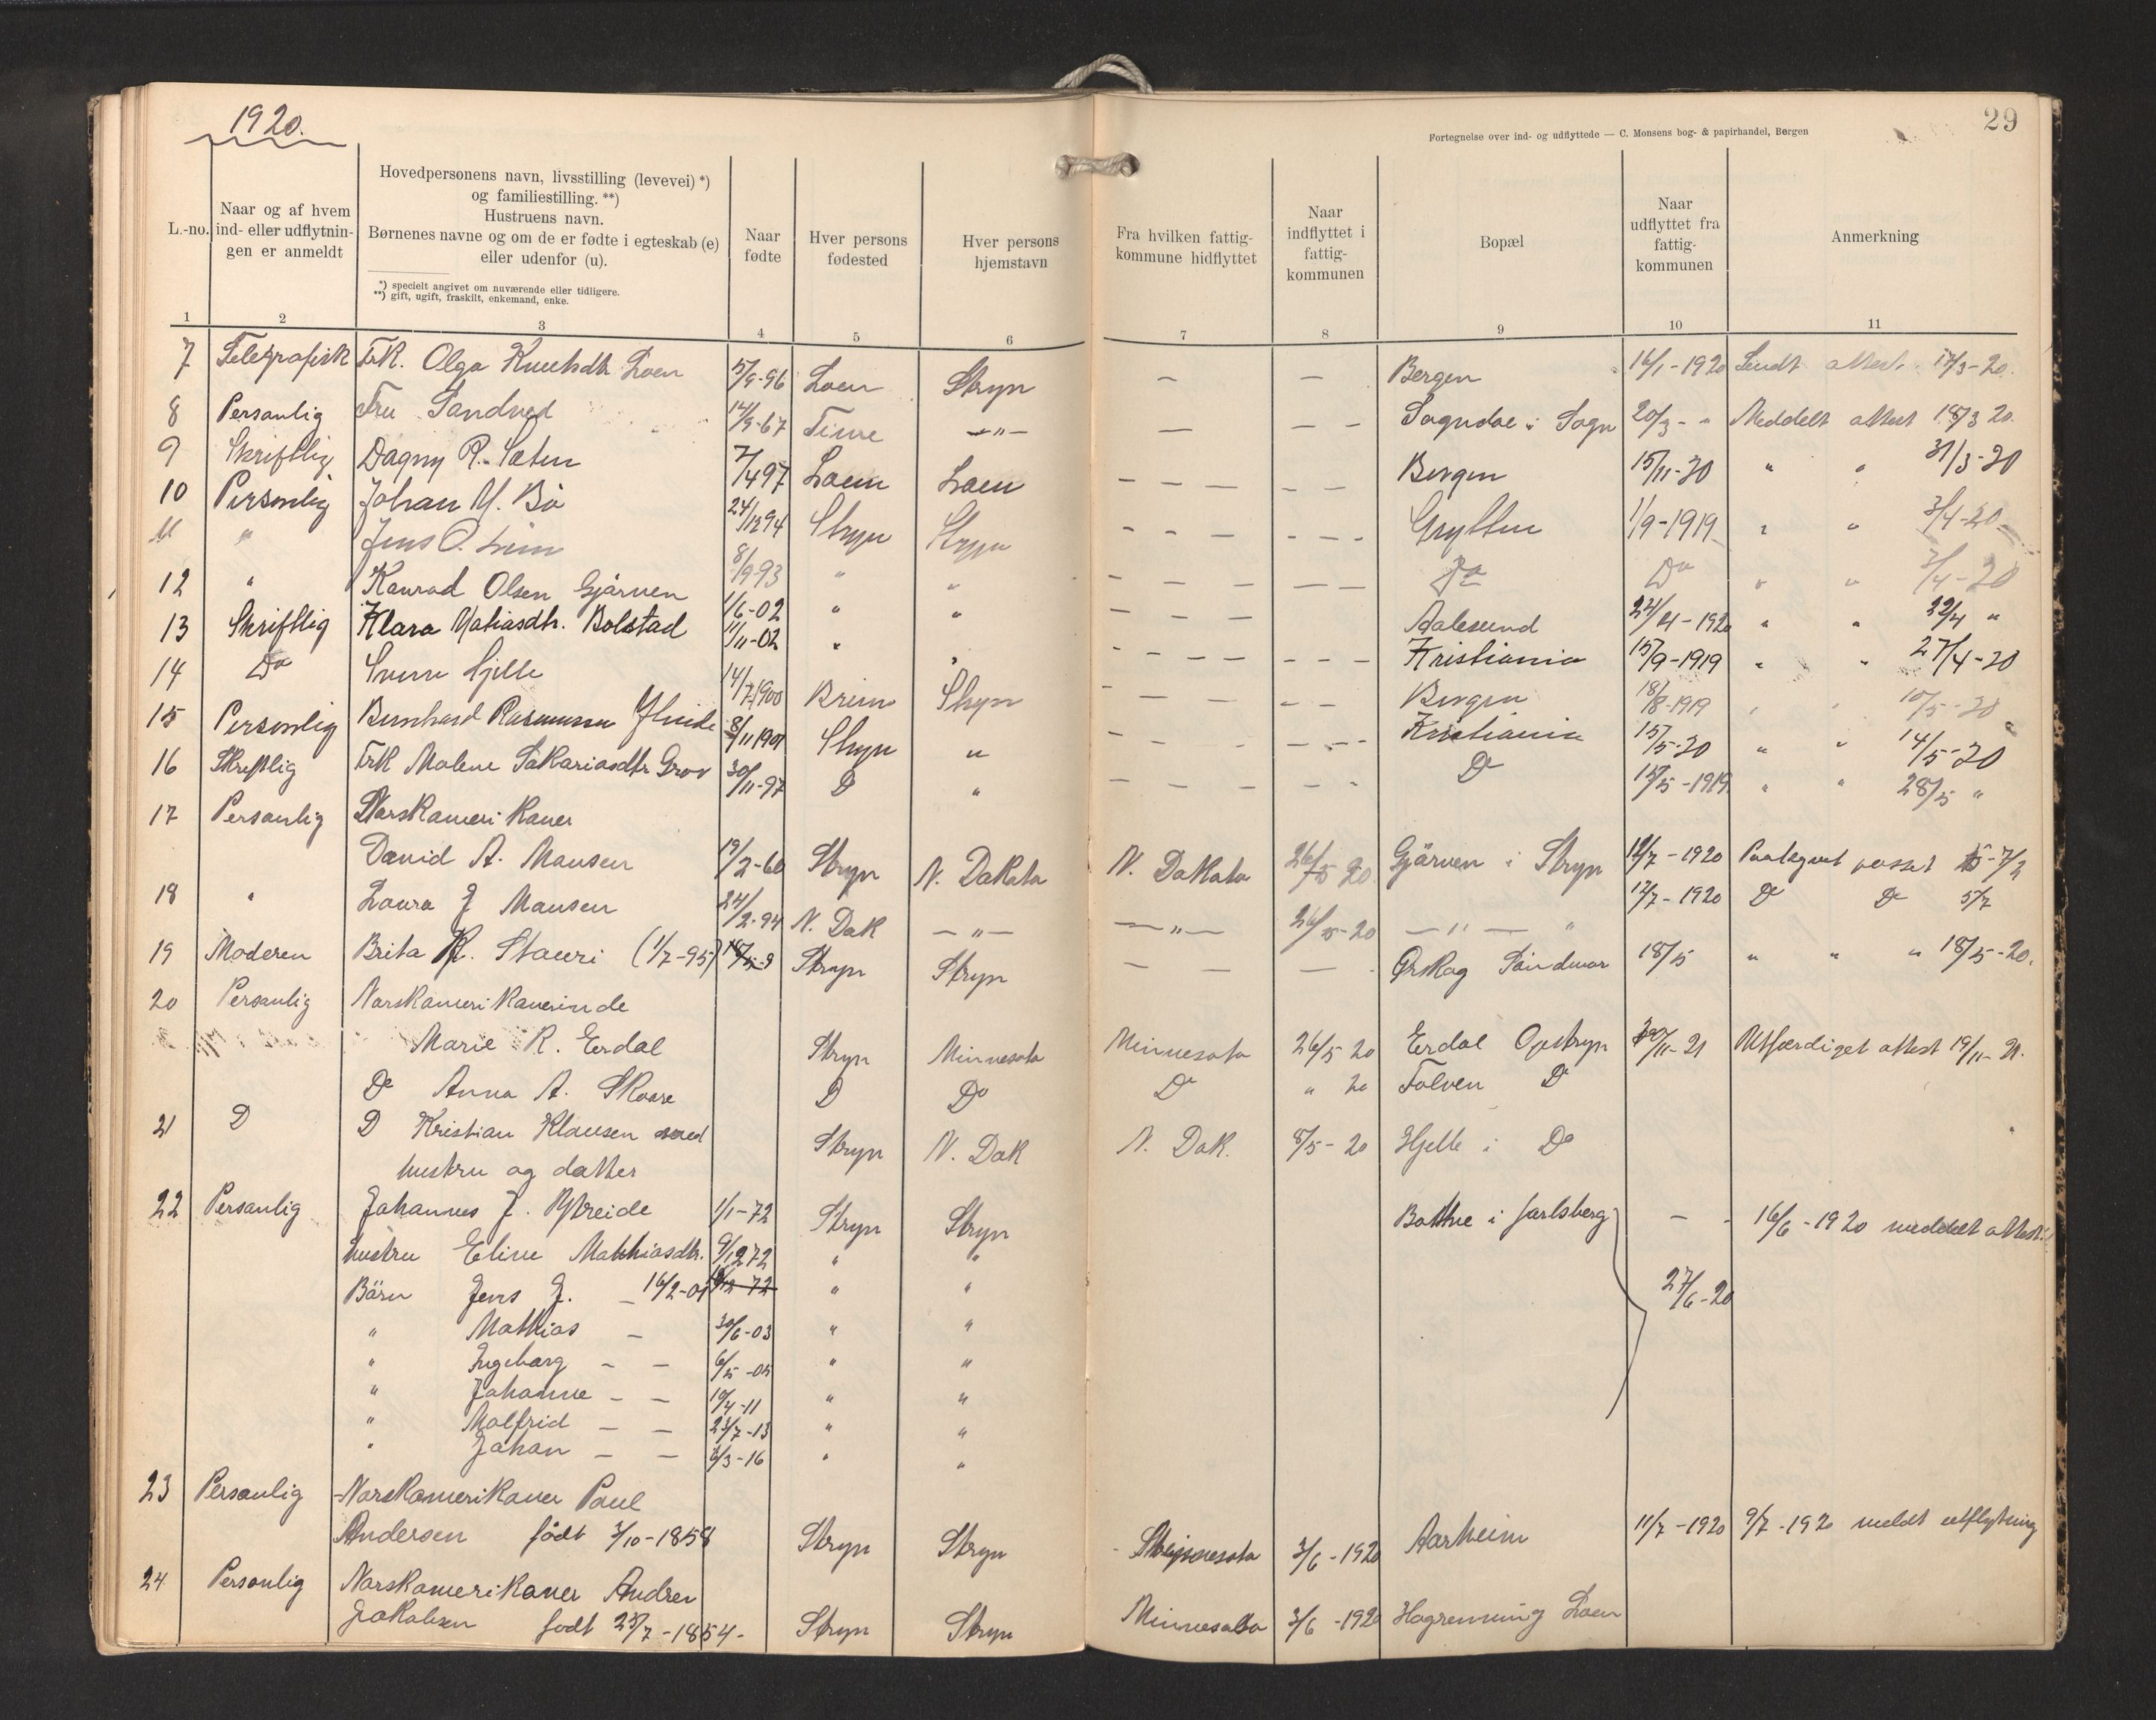 1920.
29
Fortegnelse over ind- og udflyttede — C. Monsens bog- & papirhandel, Bergen
L.-no. | Naar og af hvem ind- eller udflytningen er anmeldt | Hovedpersonens navn, livsstilling (levevei) *) og familiestilling. **) Hustruens navn. Børnenes navne og om de er fødte i egteskab (e) eller udenfor (u). *) specielt angivet om nuværende eller tidligere. **) gift, ugift, fraskilt, enkemand, enke. | Naar fødte | Hver persons fødested | Hver persons hjemstavn | Fra hvilken fattigkommune hidflyttet | Naar indflyttet i fattigkommunen | Bopæl | Naar udflyttet fra fattigkommunen | Anmerkning
1 2 3 4 5 6 7 8 9 10 11
7 Telegrafisk Frk. Olga Knutsdtr Loen 15/9-96 Loen Stryn — — Bergen 16/1-1920 Sendt attest. 17/3-20.
8 Personlig Fru Sandved 14/9-67 —"— — — — Sogndal i Sogn 20/3- " Meddelt attest 18/3 20.
9 Skriftlig Dagny R. Sæten 7/4 97 Loen Loen — — — — — Bergen 15/11-20 " " 31/3-20
10 Personlig Johan M. Bö 24/12 94 Stryn Stryn - - - - - - - Grytten 1/9-1919 " " 3/4-20
11 " Jens O. 8/9-93 " " - — — — — — Do Do " " 3/4-20
12 " Konrad Olsen Gjörven 1/6-02 " " - — — — Aalesund 24/4-1920 " " 22/4 "
13 Skriftlig Klara Matiasdtr. Bolstad 1/11-02 " " - — — — - - - Kristiania 15/9-1919 " " 27/4-20
14 Do Sverre Hjelle 14/7 1900 Brim Stryn - — — — - - Bergen 18/8-1919 " " 10/5-20
15 Personlig Bernhard Rasmussen 8/11 1901 Stryn " - - - - - - - - Kristiania 15/5-20 " " 14/5-20
16 Skriftlig Frk Malene Sakariasdtr Grov 30/11-97 D " - - - - - - Do 15/5-1919. " " 28/5 "
17 Personlig Norskamerikaner
David A. Mansen 19/2-60 Stryn N. Dakota N. Dakota 26/5 20 Gjörven i Stryn 12/7-1920 Paategnet passet 5-7/2
18 " Laura J Mansen 24/2-94 N. Dak —"— —"— 26/5-20 —"— " 12/7-1920 Do Do 5/7
19 Moderen Brita K. Stauri (1/7-95) Stryn Stryn — — — — - Ørskog Söndmör 18/5 " " " 18/5-20.
20 Personlig Norskamerikanerinde
Marie R. Erdal Stryn Minnesota Minnesota 26/5 20 Erdal Opstryn /11-21 Utfærdiget attest 19/11-21.
Do Anna A. Skaare D Do Do " 20 Folven Do
21 D D Kristian Klausen med Stryn N. Dak N. Dak. 8/5-20 Hjelle i Do
hustru og datter
22 Personlig Johannes J. Ystreide 1/1-72 Stryn Stryn Bothne i Jarlsberg — - 16/6-1920 meddelt attest.
hustru Eline Mathiasdtr. 9/12 72 " "
Börn Jens J. — 16/2-01 " " 27/6-20
" Mathias — 30/6-03 " "
" Ingeborg — — 6/5-05 " "
" Johanne — — 10/4-11 " "
" Malfrid — — 23/7-13 " "
" Johan — — 6/3-16 " "
23 Personlig Norskamerikaner Paul
Andersen födt 3/10-1858 Stryn Stryn 3/6-1920 Aarheim 11/7-1920 9/7-1920 meldt utflytning
24 Personlig Norskamerikaner Andrew
Jakobsen födt 23/7-1854- Stryn Stryn Minnesota 3/6-1920 Hogrenning Loen